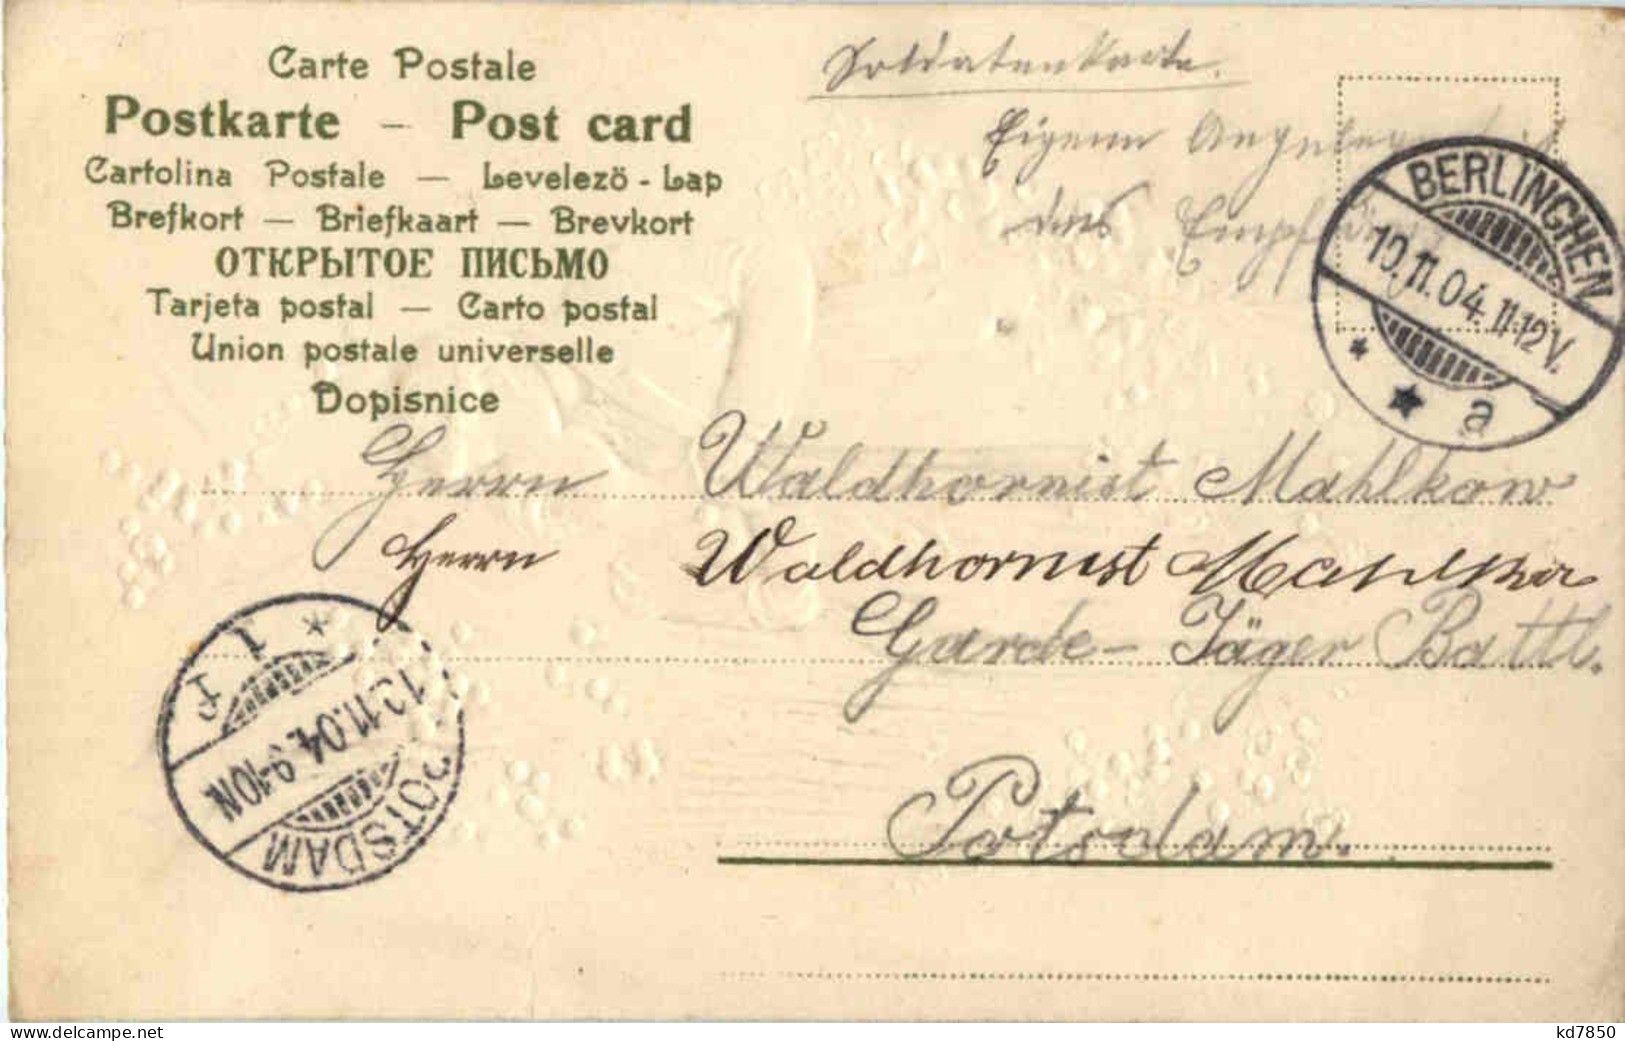 Carte Postale
Postkarte – Post card
Cartolina Postale — Levelezö - Lap
Brefkort — Briefkaart — Brevkort
ОТКРЫТОЕ ПИСЬМО
Tarjeta postal — Carto postal
Union postale universelle
Dopisnice
Soldatenkarte.
Eigene Angelegenheit
des Empfängers
BERLINGHEN
10.11.04. 11-12V.
* * a
Herrn Waldhornist Mahlkow
Herrn Waldhornist
Garde-Jäger Battl.
Potsdam.
POTSDAM
10.11.04. 9-10N.
* 1
www.delcampe.net
kd7850